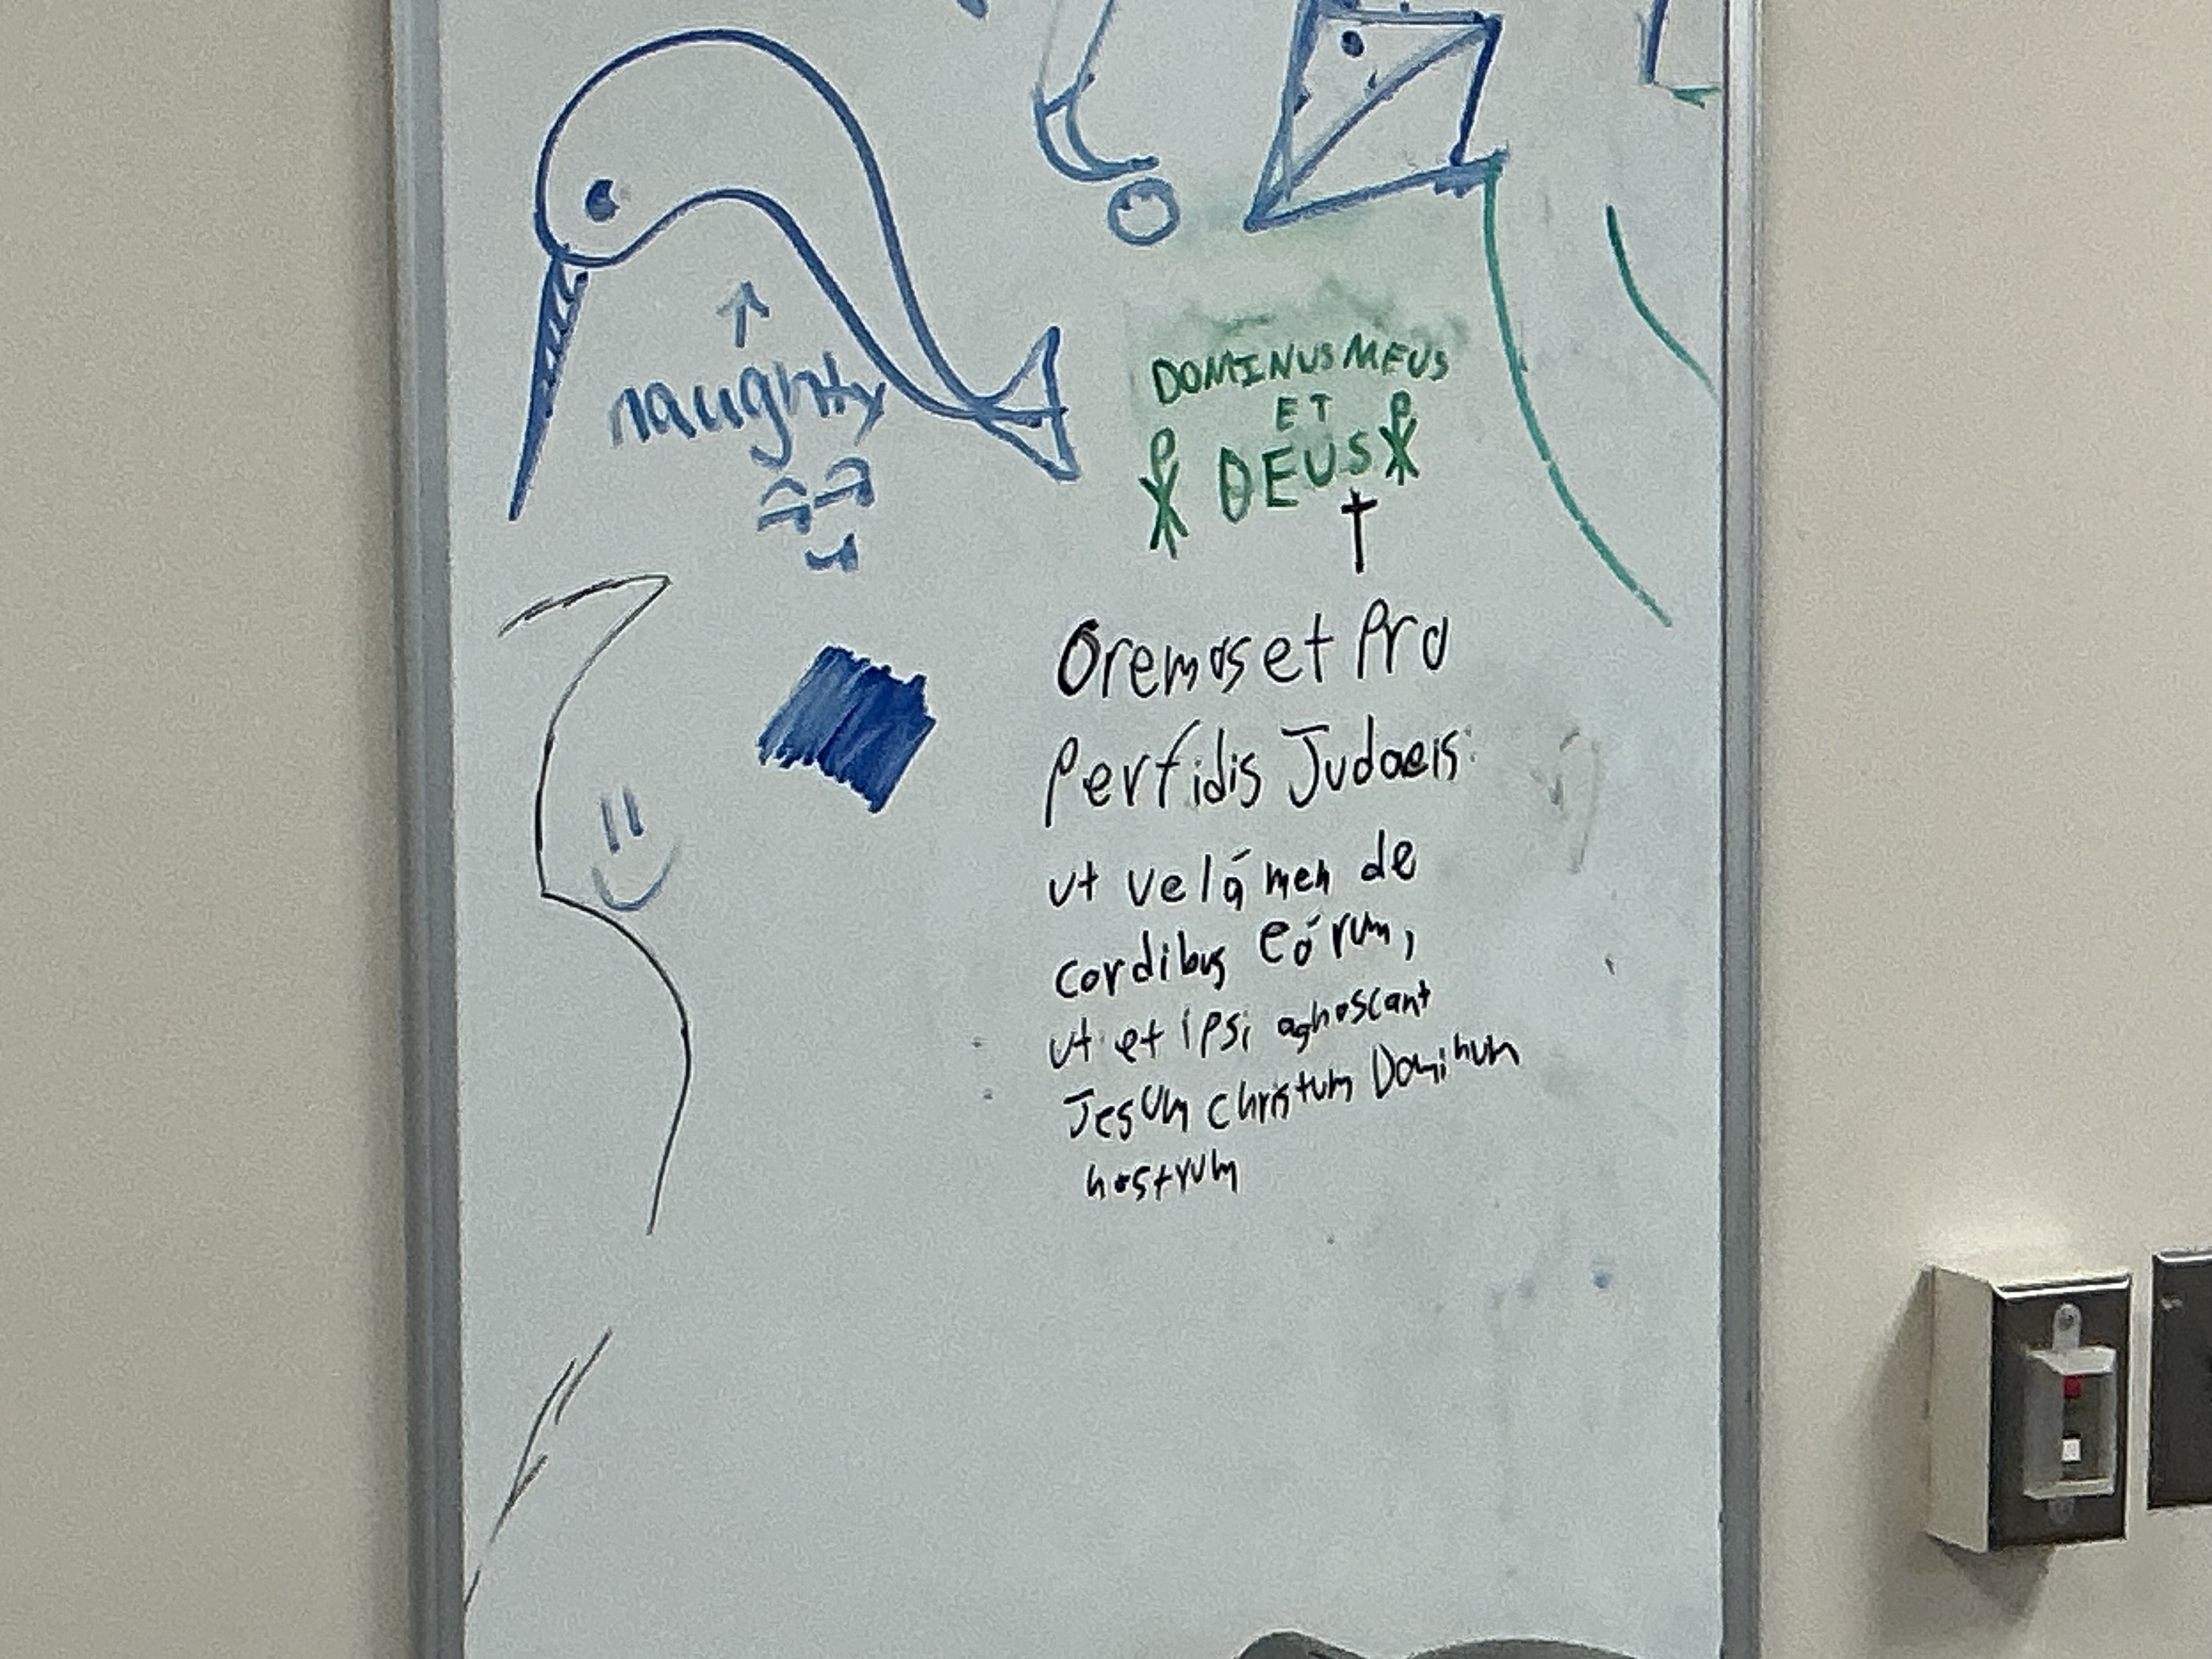 naughty
DOMINUS MEUS
ET
DEUS
Oremus et Pro
Perfidis Judaeis:
ut velámen de
cordibus eórum,
ut et ipsi agnoscant
Jesum Christum Dominum
nostrum